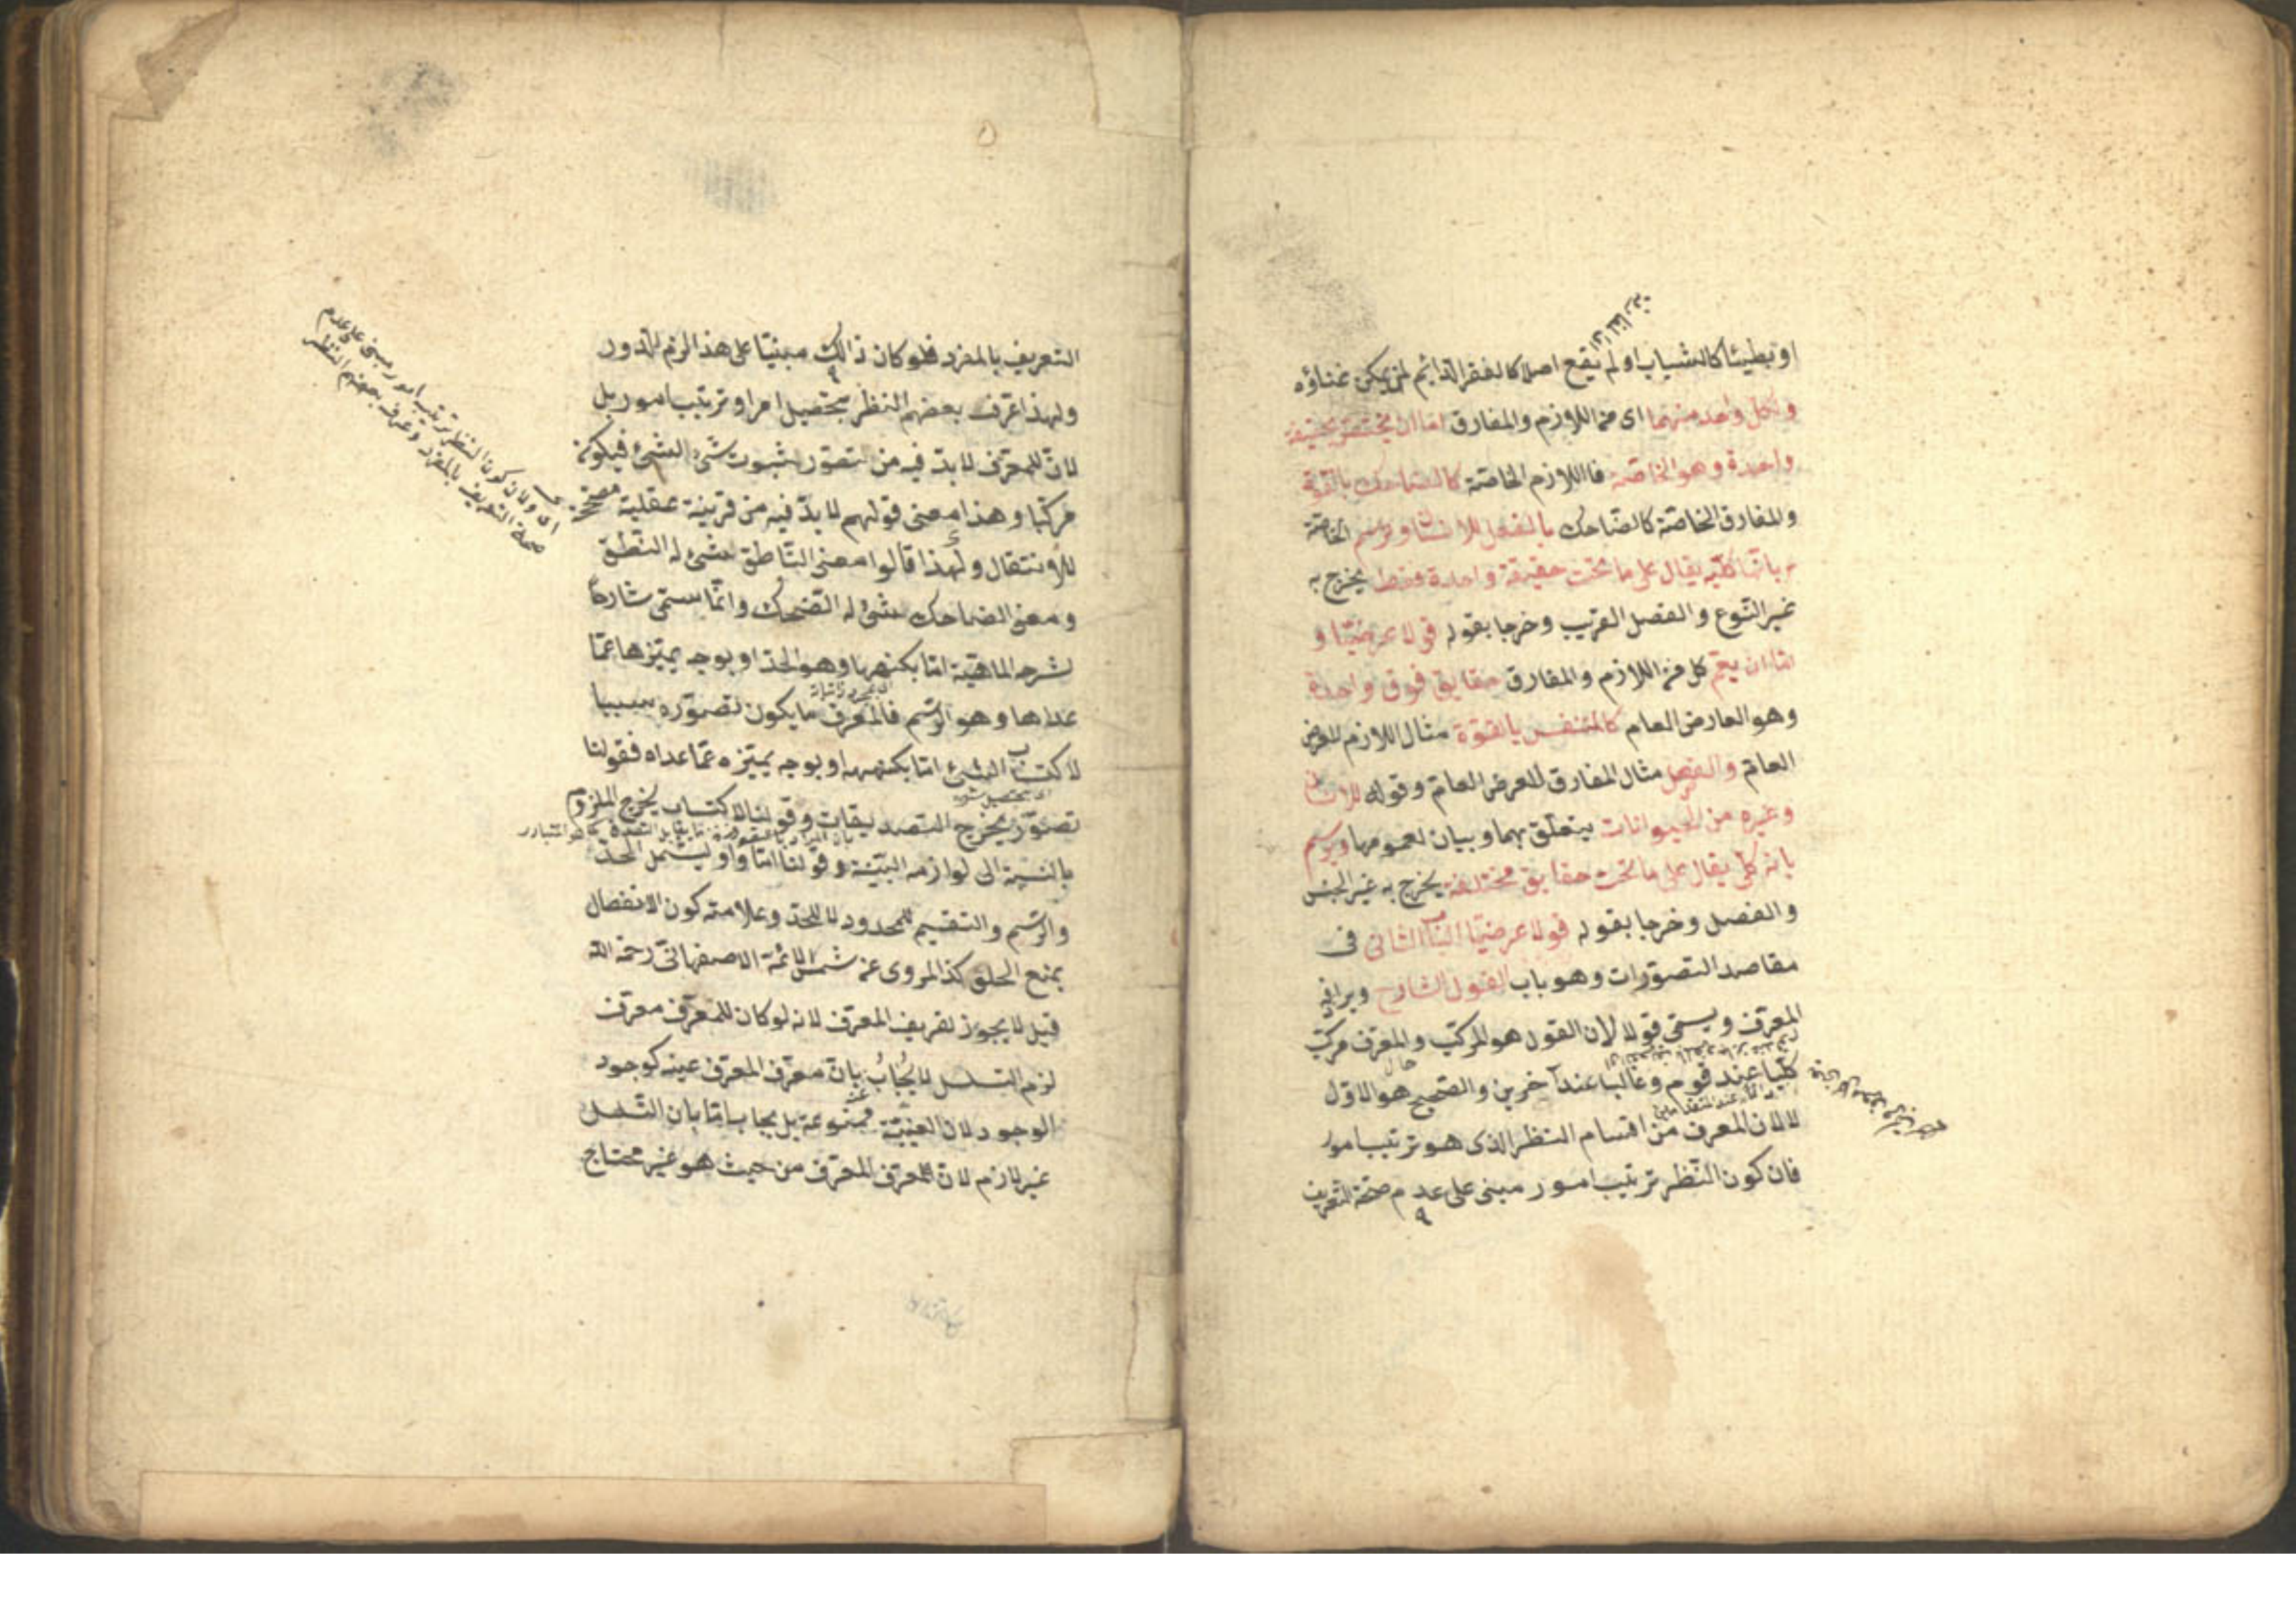 او بطيئا كالشباب او لم يقع اصلا كالفقر الدائم لمن يمكن غناؤه
ولكل واحد منهما اى من اللازم والمفارق اما ان يختص بحقيقة
واحدة وهو الخاصة فاللازم الخاصة كالضاحك بالقوة
والمفارق الخاصة كالضاحك بالفعل للانسان وترسم الخاصة
بانها كلية يقال على ما تحت حقيقة واحدة فقط يخرج به
غير النوع والفصل القريب وخرجا بقوله قولا عرضيا و
اما ان يعم كل من اللازم والمفارق حقايق فوق واحدة
وهو العارض العام كالمتنفس بالقوة مثال اللازم للعرض
العام والفعل مثال المفارق للعرض العام وقوله للانسان
وغيره من الحيوانات يتعلق بهما وبيان لعمومها ويرسم
بانه كلى يقال على ما تحت حقايق مختلفة يخرج به غير الجنس
والفصل وخرجا بقوله قولا عرضيا الباب الثانى فى
مقاصد التصورات وهو باب القول الشارح ويرادفه
المعرف ويسمى قولا لان القول هو المركب والمعرف مركب
كليا عند قوم وغالبا عند آخرين والصحيح هو الاول
لا لان المعرف من اقسام النظر الذى هو ترتيب امور
فان كون النظر ترتيب امور مبنى على عدم صحة التعريف
التعريف بالمفرد فلو كان ذالك مبنيا على هذا لزم الدور
ولهذا عرف بعضهم النظر بتحصيل امر او ترتيب امور بل
لان للمعرف لا بد فيه من تصور ثبوت شئ لشئ فيكون
مركبا وهذا معنى قولهم لا بد فيه من قرينة عقلية مصححة
للانتقال ولهذا قالوا معنى الناطق شئ له النطق
ومعنى الضاحك شئ له الضحك وانما يسمى شارحا
لشرحه الماهية اما بكنهها وهو الحد او بوجه يميزها عما
عداها وهو الرسم فالمعرف ما يكون تصوره سببا
لاكتساب الشئ اما بكنهه او بوجه يميزه عما عداه فقولنا
تصوره يخرج التصديقات وقولنا لاكتساب يخرج الملزوم
بالنسبة الى لوازمه البينة وقولنا اما واو ليشمل الحد
والرسم والتقسيم للمحدود لا للحد وعلامته كون الانفصال
بمنع الخلو كذا المروى عن شمس الائمة الاصفهانى رحمه الله
قيل لا يجوز تعريف المعرف لانه لو كان للمعرف معرف
لزم التسلسل لا يجاب بان معرف المعرف عينه كوجود
الوجود لان العينية ممنوعة بل يجاب اما بان التسلسل
غير لازم لان للمعرف المعرف من حيث هو غير محتاج
اى ولان كون النظر ترتيب امور مبنى على عدم
صحة التعريف بالمفرد وعرف بعضهم النظر